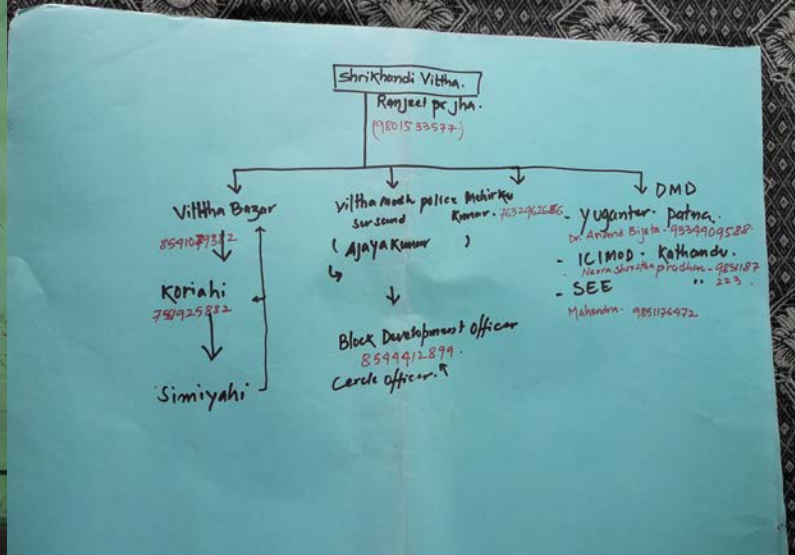 Shrikhandi Vittha.
Ranjeet pr jha.
(9801533577)
Vitttha Bazar
Koriahi
759925882
Simiyahi
Vittha Modh police
Sursand
(Ajaya Kumar)
Block Development Officer
8544412894.
Cercle officer.
Mahir Ku
Kumar. 
DMD
- Yuganter. patna.
Dr. Anand Bijeta - 9334409588.
- ICIMOD. Kathandu.
Neera Shrestha pradhan - 9851187
" 223.
- SEE
Mahendra. 9851176972